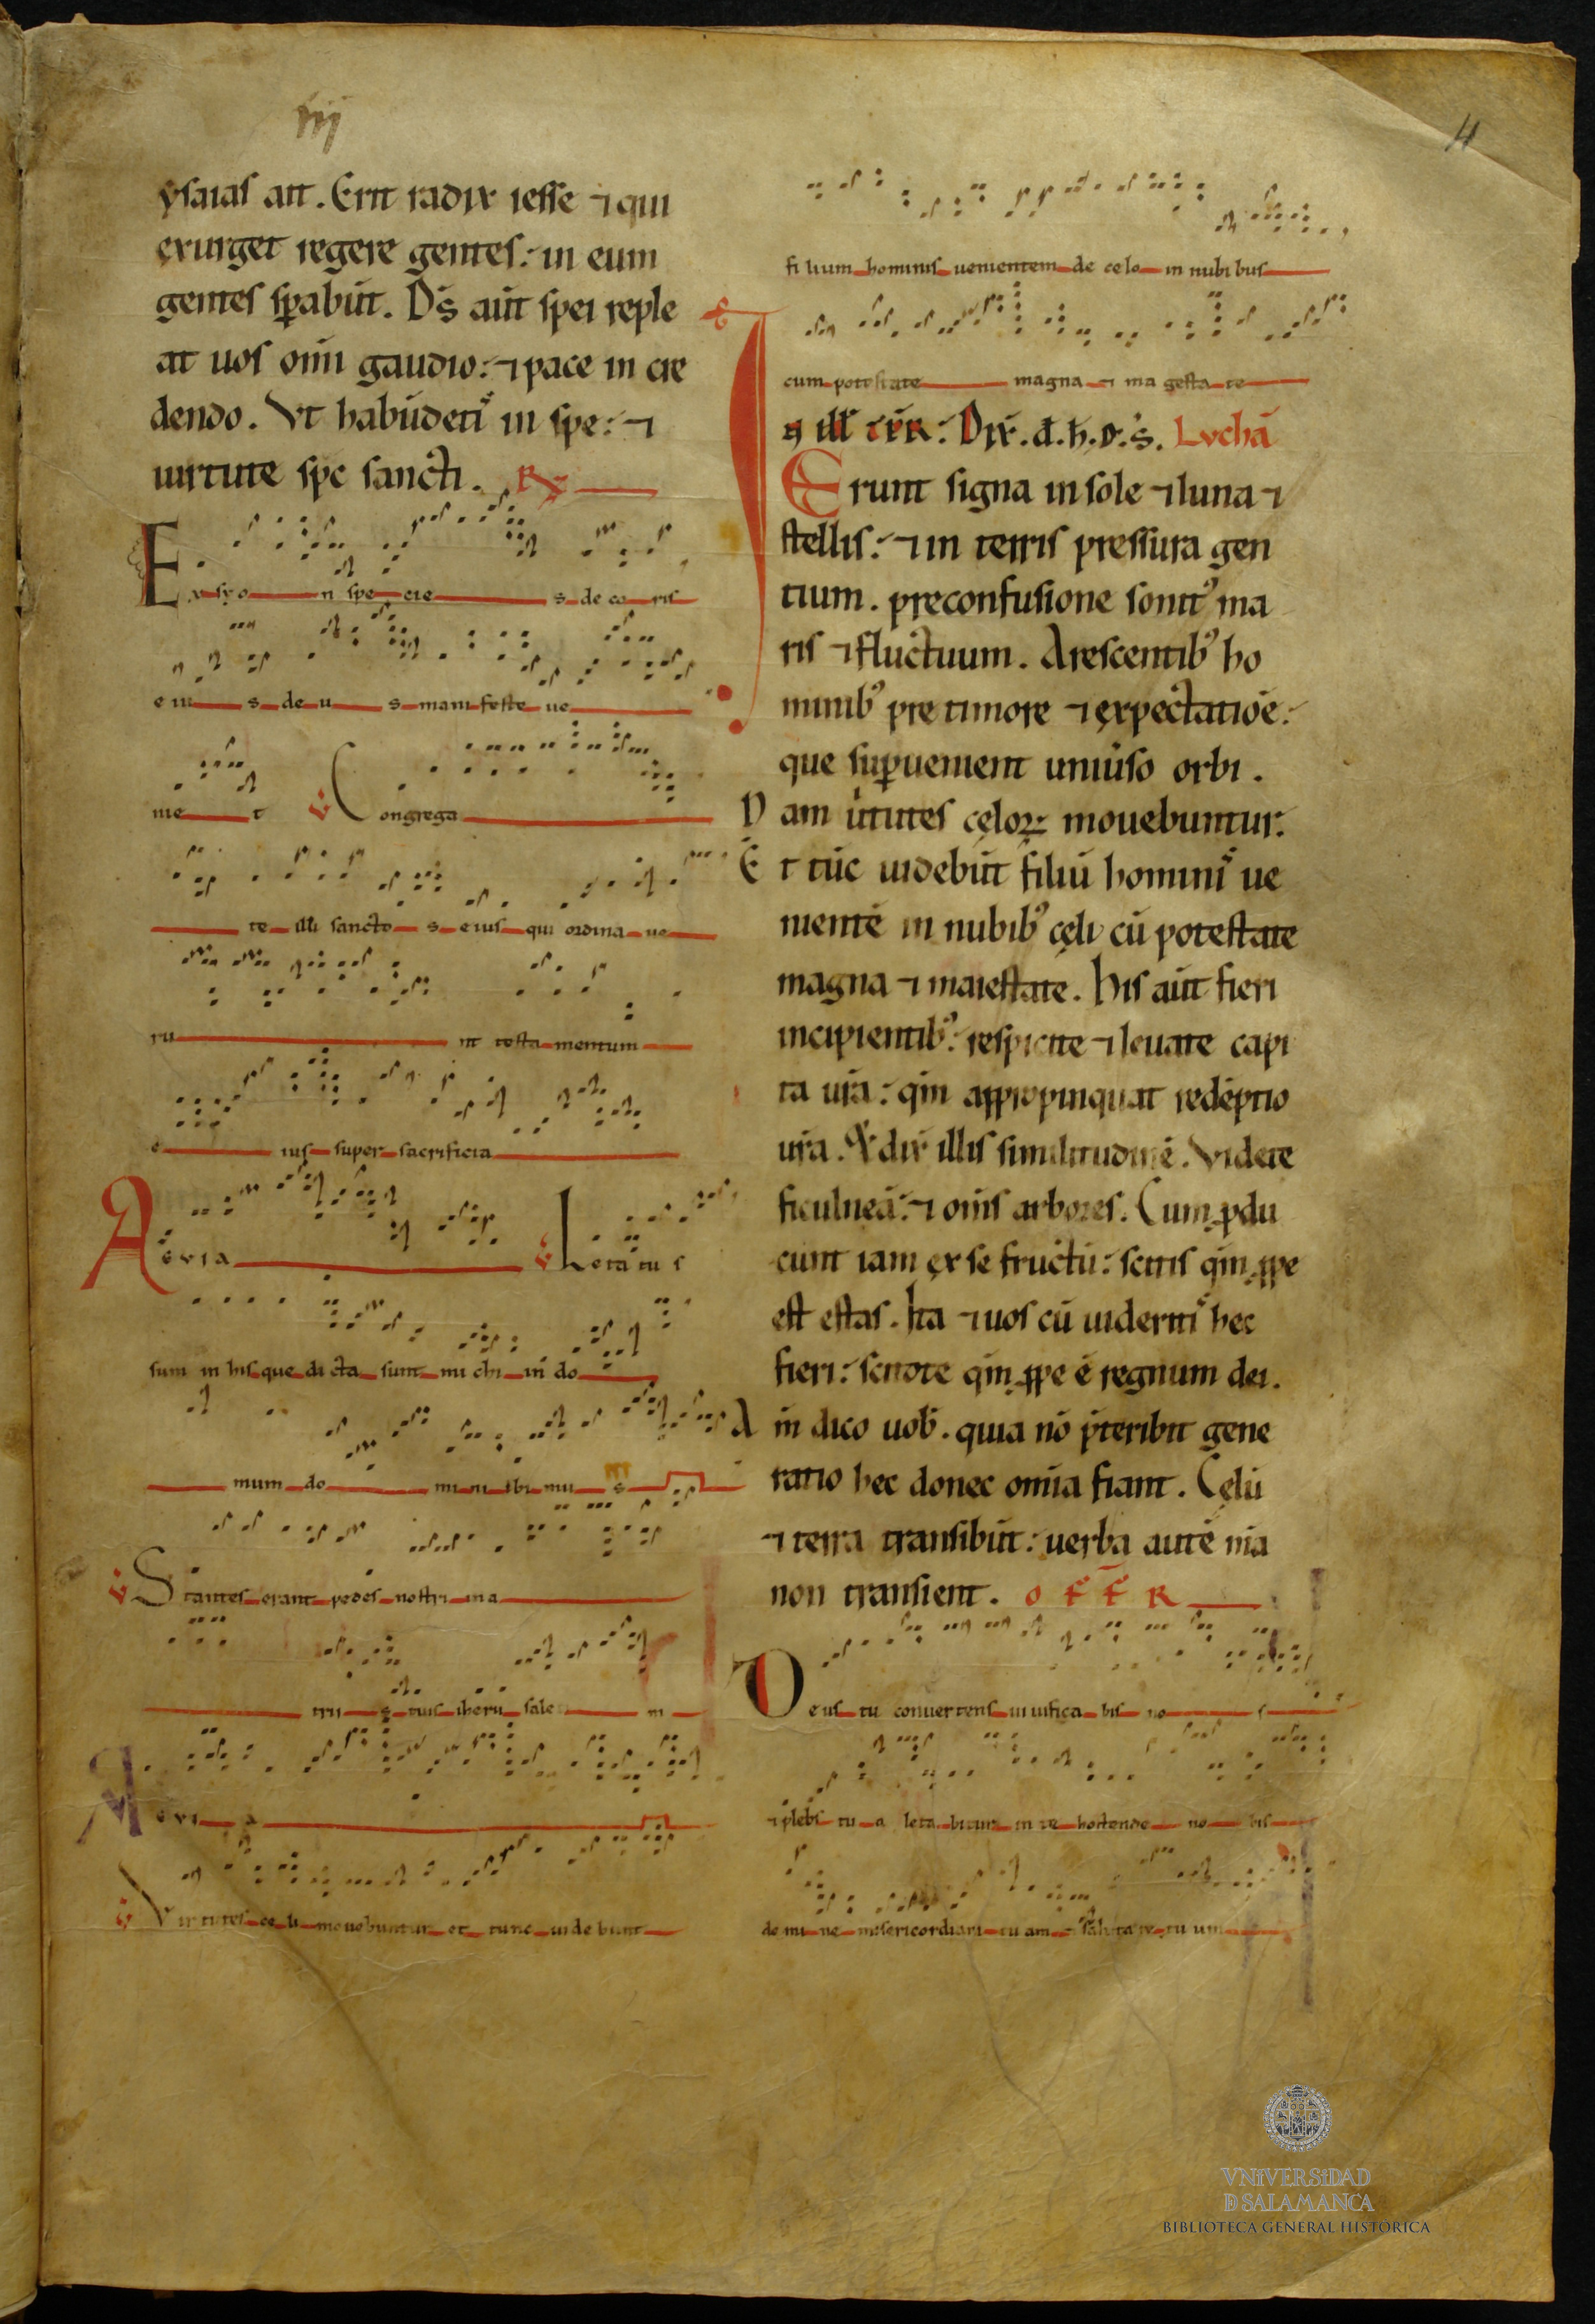 iiij
4
ysaias ait. Erit radix iesse ⁊ qui
exurget regere gentes: in eum
gentes sꝑabūt. DS̄ aūt spei reple
at uos om̄i gaudio: ⁊ pace in cre
dendo. Vt habūdetiˢ in spe: ⁊
uirtute spc sancti. R̶
Ex syo n spe cie s de co ris
e iu s de u s mani feste ue
nie t v Congrega
te illi sancto s eius qui ordina ue
ru nt testa mentum
e ius super sacrificia
Aevia v Letatus
sum in his que dicta sunt mi chi in do
mum do mi ni ibi mu s
v Stantes erant pedes nostri in a
trii s tuis iheru sale m
A evi a
v Virtutes ce li mouebuntur et tunc uide bunt
filium hominis uenientem de celo in nubi bus
cum potestate magna ⁊ ma gesta te
In ill̄ t̄p̄R: Dix̄. d̄. h̄. D. s̄. Lvchā
Erunt signa in sole ⁊ luna ⁊
stellis: ⁊ in terris pressura gen
tium. preconfusione sonitꝰ ma
ris ⁊ fluctuum. Arescentibꝰ ho
minibꝰ pre timore ⁊ expectatiōe:
que suꝑuenient uniūso orbi.
Nam ūtutes cęloꝝ mouebuntur.
Et tūc uidebūt filiū hominiˢ ue
nientē in nubibꝰ cęli cū potestate
magna ⁊ maiestate. His aūt fieri
incipientibꝰ: respicite ⁊ leuate capi
ta ur̄a: qm̄ appropinquat redēptio
ur̄a. Et dix̄ illis similitudinē. Videte
ficulneā: ⁊ om̄is arbores. Cum ꝓdu
cunt iam ex se fructū: scitis qm̄ ꝓpe
est estas. Ita ⁊ uos cū uideritiˢ hec
fieri: scitote qm̄ ꝓpe ē regnum dei.
Am̄ dico uob̄. quia nō p̄teribit gene
ratio hec donec om̄ia fiant. Cęlū
⁊ terra transibūt: uerba autē m̄a
non transient. OFFR
Deus tu conuertens uiuifica bis no s
⁊ plebs tu a leta bitur in te hostende no bis
do mi ne misericordiam tu am ⁊ salutare tu um
VNIVERSIDAD
D SALAMANCA
BIBLIOTECA GENERAL HISTÓRICA